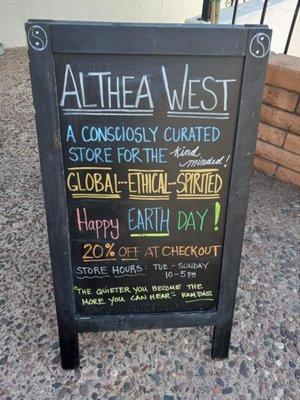 ALTHEA WEST
A CONSCIOSLY CURATED
STORE FOR THE kind
minded!
GLOBAL---ETHICAL---SPIRITED
Happy EARTH DAY!
20% OFF AT CHECKOUT
STORE HOURS: TUE - SUNDAY
10-5PM
"THE QUIETER YOU BECOME THE
MORE YOU CAN HEAR" - RAM DASS